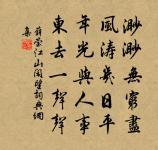 渺渺無窮盡
風濤幾日平
年光與人事
東去一聲聲
薛瑩江山閣望詞典網
集